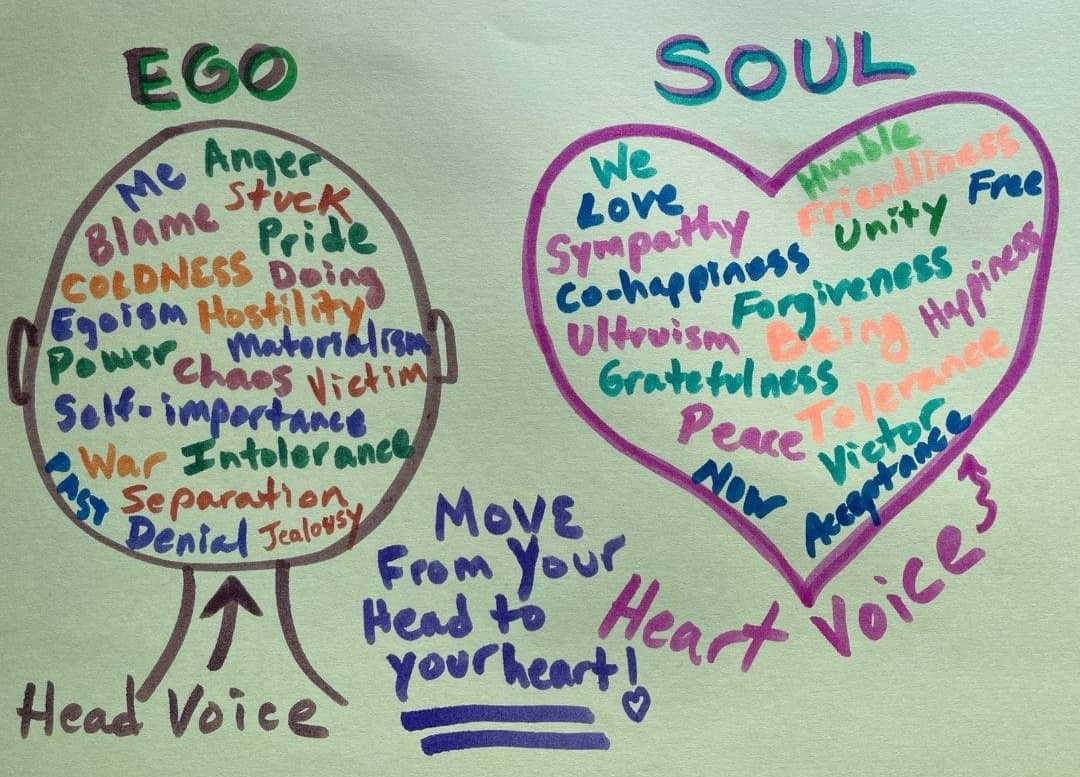 EGO
Me Anger
Stuck
Blame Pride
COLDNESS Doing
Egoism Hostility
Power Materialism
Chaos Victim
Self-importance
War Intolerance
Past Separation
Denial Jealousy
Head Voice
MOVE
From Your
Head to
your heart!
SOUL
We Humble
Love Friendliness Free
Sympathy Unity
Co-happiness Forgiveness
Ultruism Being Happiness
Gratefulness Tolerance
Peace Victor
Now Acceptance
Heart Voice